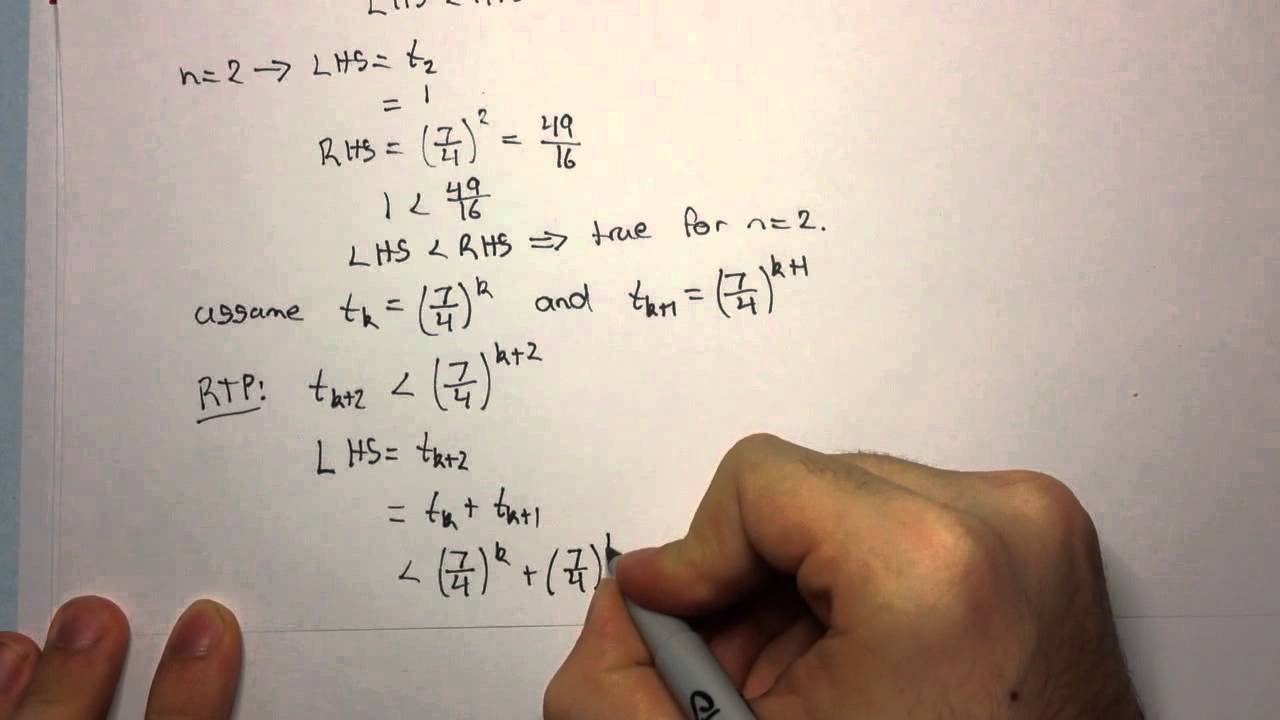 LHS < RHS
n=2 → LHS = t₂
= 1
RHS = (7/4)² = 49/16
1 < 49/16
LHS < RHS ⇒ true for n=2.
assume tₖ = (7/4)ᵏ and tₖ₊₁ = (7/4)ᵏ⁺¹
RTP: tₖ₊₂ < (7/4)ᵏ⁺²
LHS = tₖ₊₂
= tₖ + tₖ₊₁
< (7/4)ᵏ + (7/4)